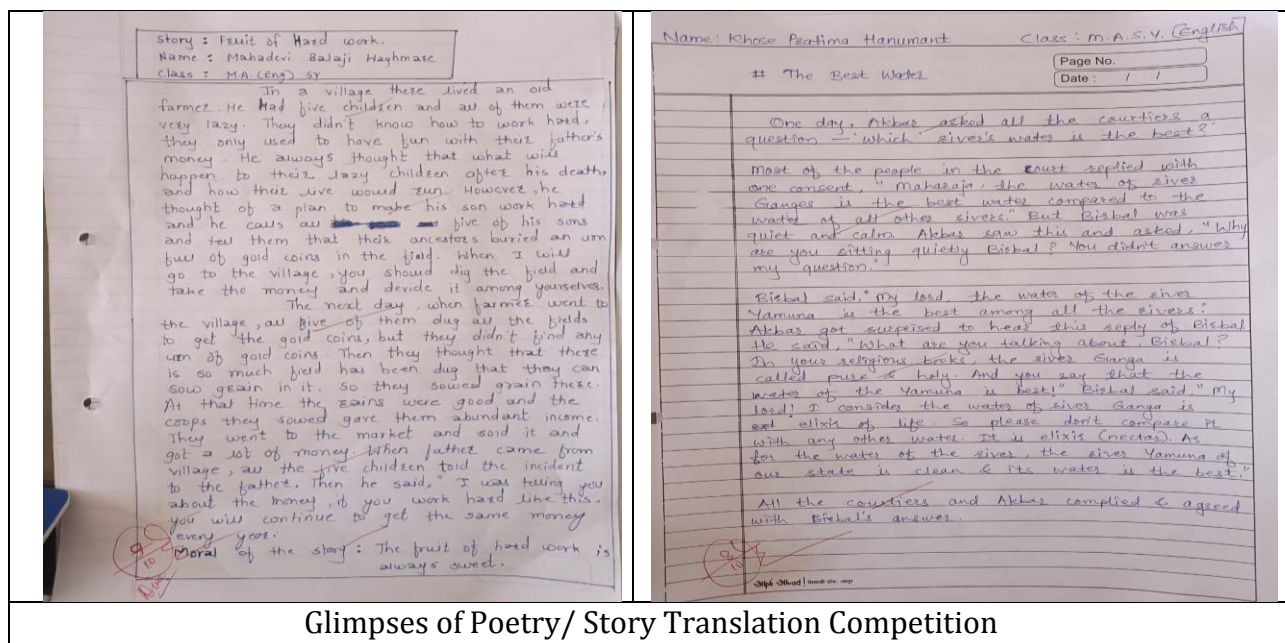 Story : Fruit of Hard work.
Name : Mahadevi Balaji Waghmare
Class : M.A. (Eng) SY
In a village there lived an old
farmer. He Had five children and all of them were
very lazy. They didn't know how to work hard,
they only used to have fun with their father's
money. He always thought that what will
happen to their lazy children after his death,
and how their live would run. However, he
thought of a plan to make his son work hard
and he calls all five of his sons
and tell them that their ancestors burried an urn
full of gold coins in the field. When I will
go to the village, you should dig the field and
take the money and devide it among yourselves.
The next day, when farmer went to
the village, all five of them dug all the fields
to get the gold coins, but they didn't find any
urn of gold coins. Then they thought that there
is so much field has been dug that they can
sow grain in it. So they sowed grain there.
At that time the rains were good and the
coops they sowed gave them abundant income.
They went to the market and sold it and
got a lot of money. When father came from
village, all the five children told the incident
to the father. Then he said, "I was telling you
about the money, if you work hard like this,
you will continue to get the same money
every year.
Moral of the story : The fruit of hard work is
always sweet.
9
10
Name: Khose Pratima Hanumant Class : M.A.S.Y. (English
Page No.
Date : / /
# The Best Water
One day, Akbar asked all the courtiers a
question – 'which river's water is the best?'
Most of the people in the court replied with
one consent, "Maharaja, the water of river
Ganges is the best water compared to the
water of all other rivers." But Birbal was
quiet and calm. Akbar saw this and asked, "Why
are you sitting quietly Birbal? You didn't answer
my question."
Birbal said, "My lord, the water of the river
Yamuna is the best among all the rivers."
Akbar got surprised to hear this reply of Birbal
He said, "What are you talking about, Birbal?
In your religious books, the river Ganga is
called pure & holy. And you say that the
water of the Yamuna is best!" Birbal said, "My
lord! I consider the water of river Ganga is
elixir of life. So please don't compare it
with any other water. It is elixir (nectar). As
for the water of the river, the river Yamuna of
our state is clean & its water is the best."
All the courtiers and Akbar complied & agreed
with Birbal's answer.
10
Glimpses of Poetry/ Story Translation Competition